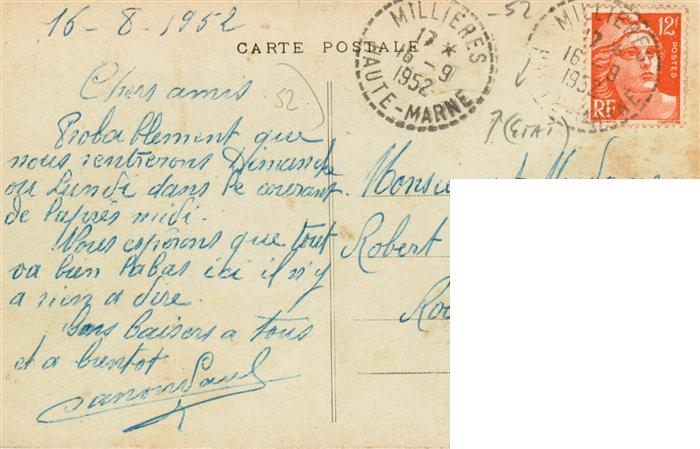 16-8-1952
CARTE POSTALE
-52
MILLIERES
17 *
16-9
1952
HAUTE-MARNE
MILLIERES
16-9
1952
12F
POSTES
RF
(ETAT)
52
Chers amis
Probablement que
nous rentrerons Dimanche
ou Lundi dans le courant
de l'après midi.
Nous espérons que tout
va bien labas ici il n'y
a rien a dire.
Bons baisers a tous
et a bientot
Monsieu
Robert